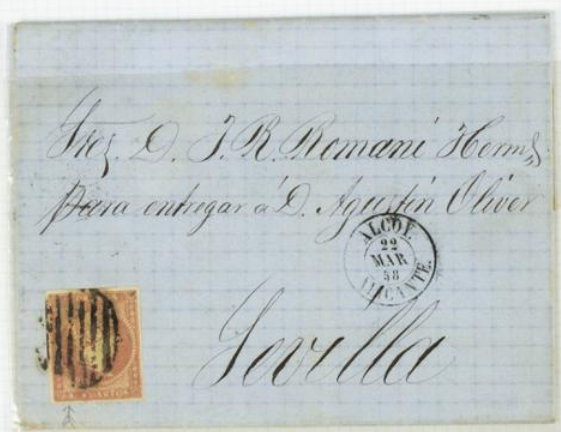 Sres. D. J. R. Romani Herms
para entregar á D. Agustin Oliver
ALCOY.
22
MAR
58
ALICANTE.
Sevilla
CUARTOS